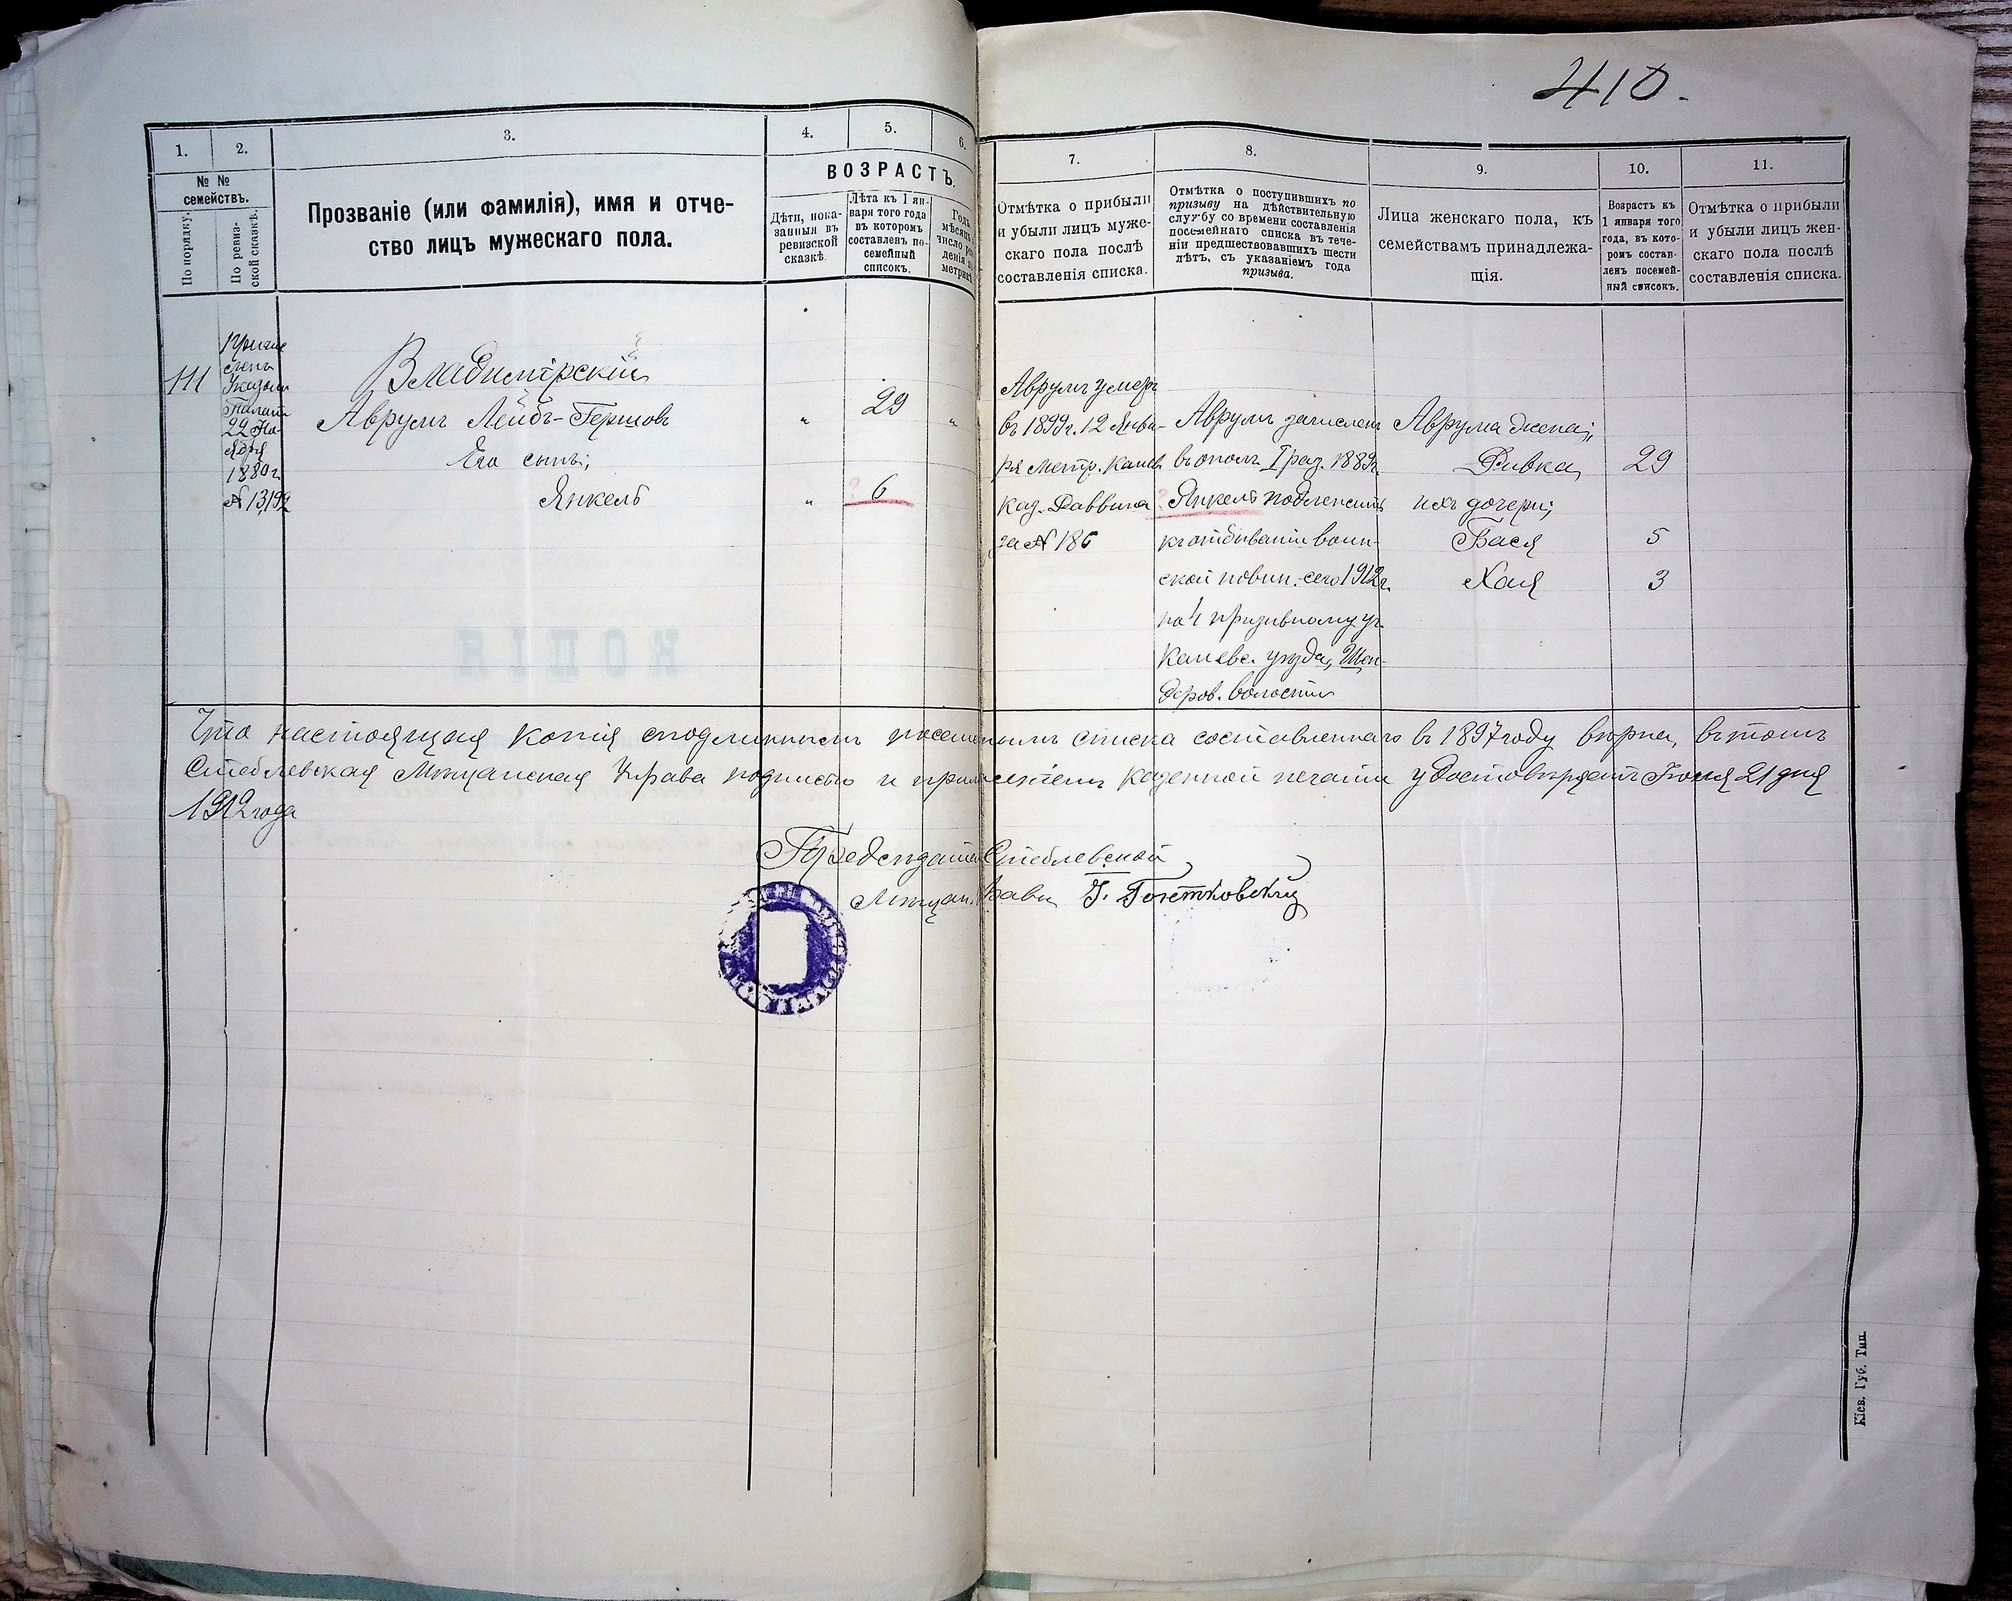 410.
1.
2.
3.
4.
5.
6.
№ № семействъ.
По порядку.
По ревиз-
ской сказкѣ.
Прозваніе (или фамилія), имя и отче-
ство лицъ мужескаго пола.
ВОЗРАСТЪ.
Дѣти, пока-
занныя въ
ревизской
сказкѣ.
Лѣта къ 1 ян-
варя того года
въ которомъ
составленъ по-
семейный
списокъ.
7.
8.
9.
10.
11.
Отмѣтка о прибыли
и убыли лицъ муже-
скаго пола послѣ
составленія списка.
Отмѣтка о поступившихъ по
призыву на дѣйствительную
службу со времени составленія
посемейнаго списка въ тече-
ніи предшествовавшихъ шести
лѣтъ, съ указаніемъ года
призыва.
Лица женскаго пола, къ
семействамъ принадлежа-
щія.
Возрастъ къ
1 января того
года, въ кото-
ромъ состав-
ленъ посемей-
ный список.
Отмѣтка о прибыли
и убыли лицъ жен-
скаго пола послѣ
составленія списка.
111
Указом
Палат
22 Но-
ября
1889 г
№ 13192
Владимірскій
Аврумъ Лейбъ-Гершовъ
29
Его сынъ;
Янкель
6
Аврумъ умеръ
въ 1899 г. 12 Янва-
ря Метр. Канев
каз. Раввина
за № 186
Аврумъ зачисленъ
въ ополч. I раз. 1889 г.
Янкель подлежитъ
къ отбыванію воин-
ской повин. сего 1912 г.
по 4 призывному уч.
Каневс. уѣзда, Шен-
деров. волости
Аврума жена;
Ривка
29
ихъ дочери;
Бася
5
Хая
3
Что настоящая копія съ подлиннымъ посемейнымъ списка составленнаго въ 1897 году вѣрна, въ томъ
Стеблевская Мѣщанская Управа подписью и приложеніемъ казенной печати удостовѣряетъ Іюня 21 дня
1912 года
Предсѣдатель Стеблевской
Мѣщан. Управы
КОПІЯ
Кіев. Губ. Тип.